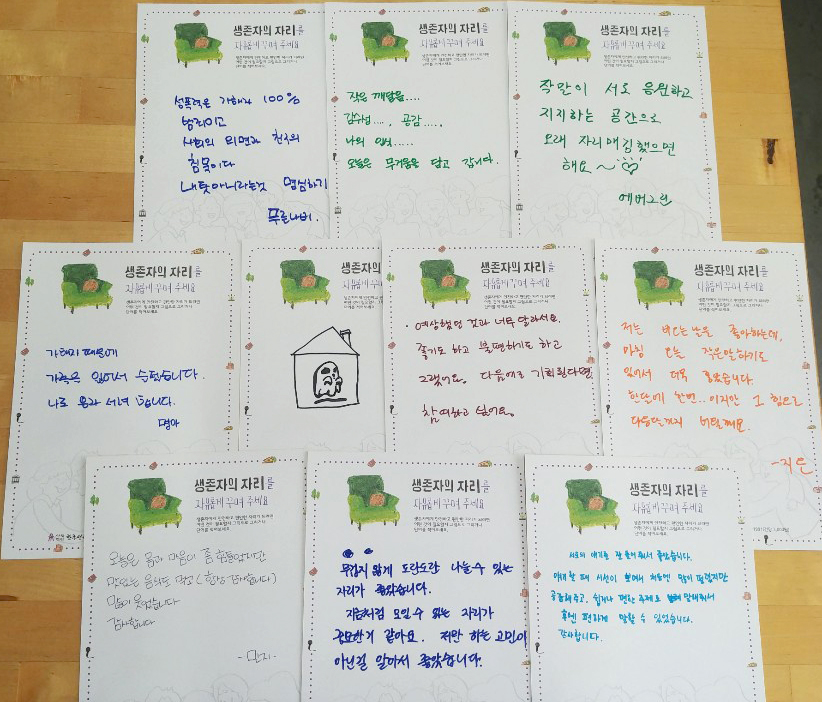 생존자의 자리를
자유롭게 꾸며 주세요
성폭력은 가해자 100%
범죄이고
사회의 외면과 친구의
침묵이다
내 탓 아니라는것 명심하기
푸른나비.
생존자의 자리를
자유롭게 꾸며 주세요
작은 깨달음....
감수성...., 공감....,
나의 일상.....
오늘은 무거움을 담고 갑니다.
생존자의 자리를
자유롭게 꾸며 주세요
작말이 서로 응원하고
지지하는 공간으로
오래 자리매김 했으면
해요~
에버그린
생존자의 자리를
자유롭게 꾸며 주세요
가해자 때문에
가족은 있어서 슬펐습니다.
나로 움과 서녀 합니다.
생존자의 자리
자유롭게 꾸며
생존자의 자리를
자유롭게 꾸며 주세요
예상했던 것과 너무 달라서요.
즐기도 하고 불편하기도 하고
그랬어요. 다음에도 기회된다면
참여하고 싶어요.
생존자의 자리를
자유롭게 꾸며 주세요
저는 비오는날을 좋아하는데,
마침 오늘 작은말하기도
있어서 더욱 좋았습니다.
한달에 한번.. 이지만 그 힘으로
다음달까지 버틸께요.
-지은
생존자의 자리를
자유롭게 꾸며 주세요
오늘은 몸과 마음이 좀 힘들었지만
맛있는 음식도 먹고 (항상 감사합니다)
많이 웃었습니다
감사합니다
-민지-
생존자의 자리를
자유롭게 꾸며 주세요
무겁지 않게 도란도란 나눌 수 있는
자리가 좋았습니다.
지금처럼 모일 수 있는 자리가
귀한것 같아요. 저만 하는 고민이
아닌걸 알아서 좋았습니다.
생존자의 자리를
자유롭게 꾸며 주세요
서로의 얘기를 잘 들어줘서 좋았습니다.
얘기할 때 시선이 쏠려서 처음엔 많이 떨렸지만
공감해주고, 쉽거나 편한 주제로 말해줘서
후엔 편하게 말할 수 있었습니다.
감사합니다.